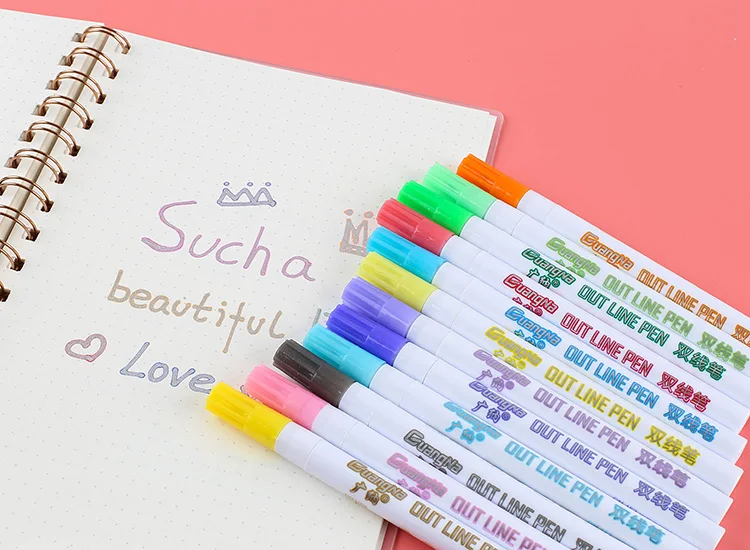 Sucha
beautiful
Love
GuangNa OUT LINE PEN 双线
GuangNa OUT LINE PEN 双线笔
GuangNa 广纳 OUT LINE PEN 双线笔
GuangNa OUT LINE PEN 双线笔
GuangNa OUT LINE PEN 双线笔
GuangNa OUT LINE PEN 双线笔
GuangNa 广纳 OUT LINE PEN 双线笔
GuangNa 广纳 OUT LINE PEN 双线笔
GuangNa 广纳 OUT LINE PEN 双线笔
GuangNa OUT LINE PEN
GuangNa OUT LINE PEN
GuangNa 广纳 OUT LINE PEN